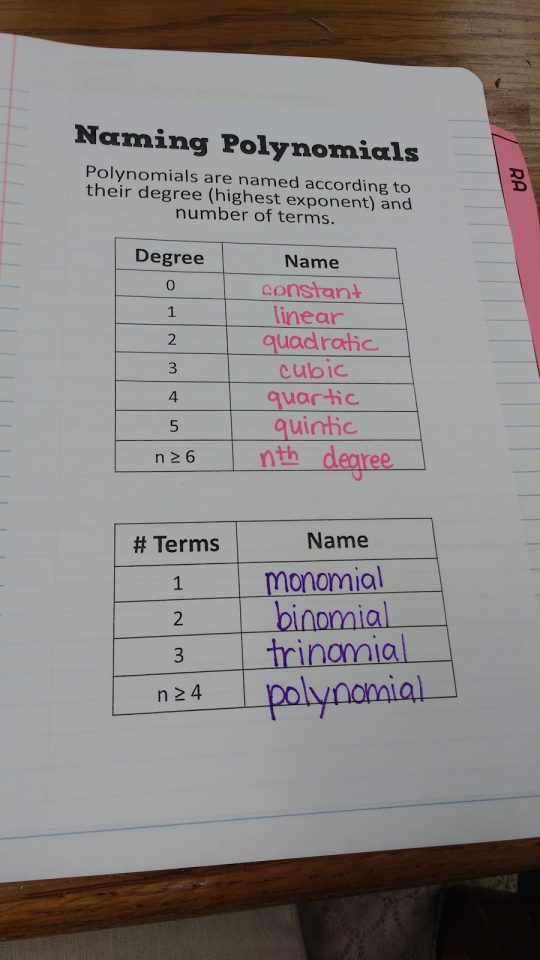 Naming Polynomials
Polynomials are named according to
their degree (highest exponent) and
number of terms.
RA
Degree Name
0 constant
1 linear
2 quadratic
3 cubic
4 quartic
5 quintic
n ≥ 6 nth degree
# Terms Name
1 monomial
2 binomial
3 trinomial
n ≥ 4 polynomial